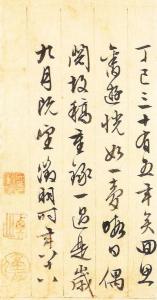 丁巳三十有五年矣回思
舊遊恍如一夢暇日偶
閱故稿重錄一過是歲
九月既望時年八十八